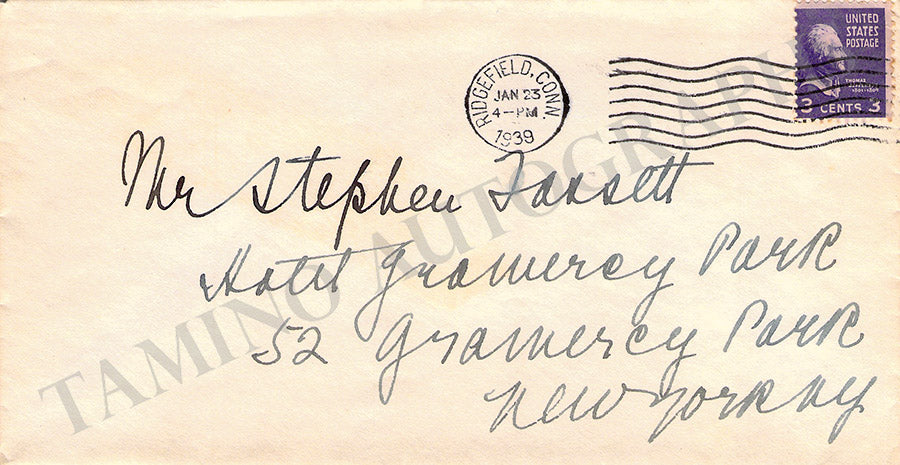 UNITED
STATES
POSTAGE
THOMAS
JEFFERSON
1801-1809
3 CENTS 3
RIDGEFIELD, CONN.
JAN 23
4-PM
1939
Mr Stephen Fassett
Hotel Gramercy Park
52 Gramercy Park
New York NY
TAMINO AUTOGRAPHS